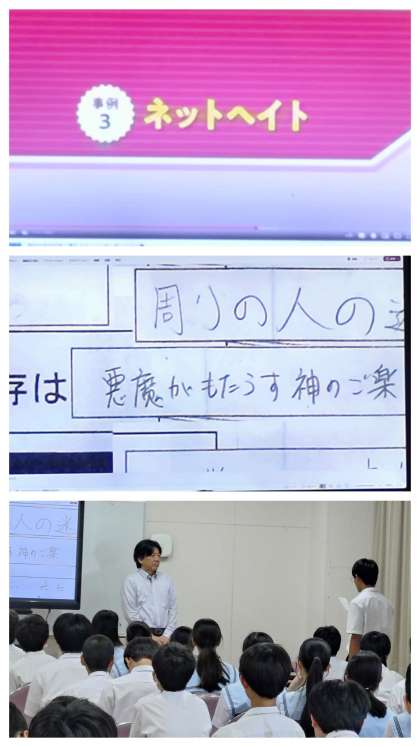 事例
3
ネットヘイト
周りの人の迷
存は
悪魔がもたらす神のご楽
人の迷
神のご楽